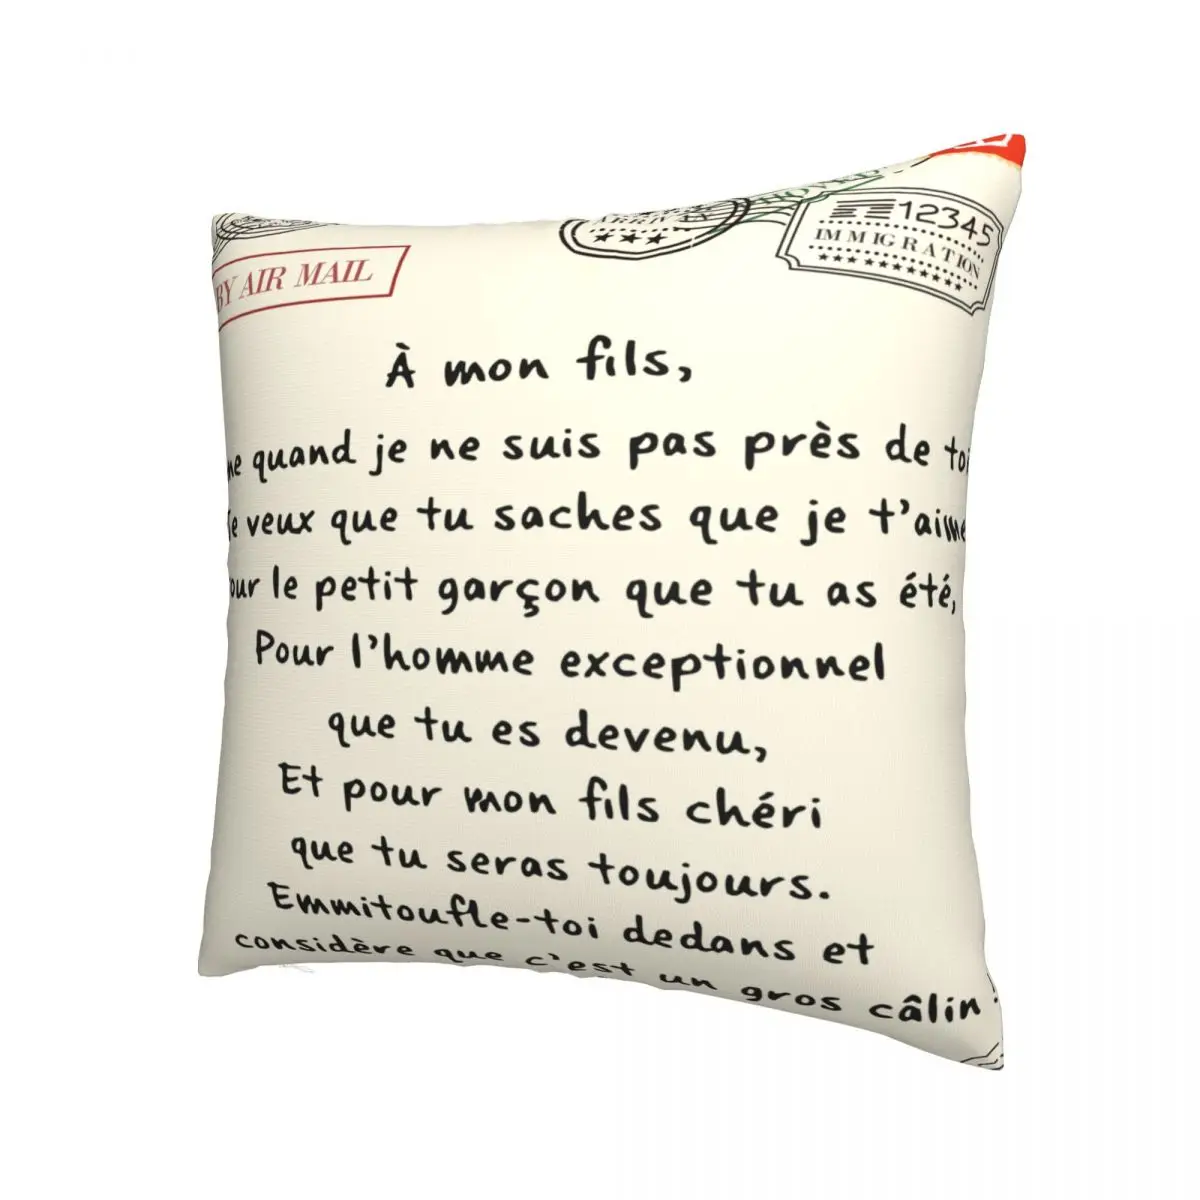 12345
IMMIGRATION
BY AIR MAIL
À mon fils,
quand je ne suis pas près de toi
Je veux que tu saches que je t'aime
le petit garçon que tu as été,
Pour l'homme exceptionnel
que tu es devenu,
Et pour mon fils chéri
que tu seras toujours.
Emmitoufle-toi dedans et
considère que c'est un gros câlin!